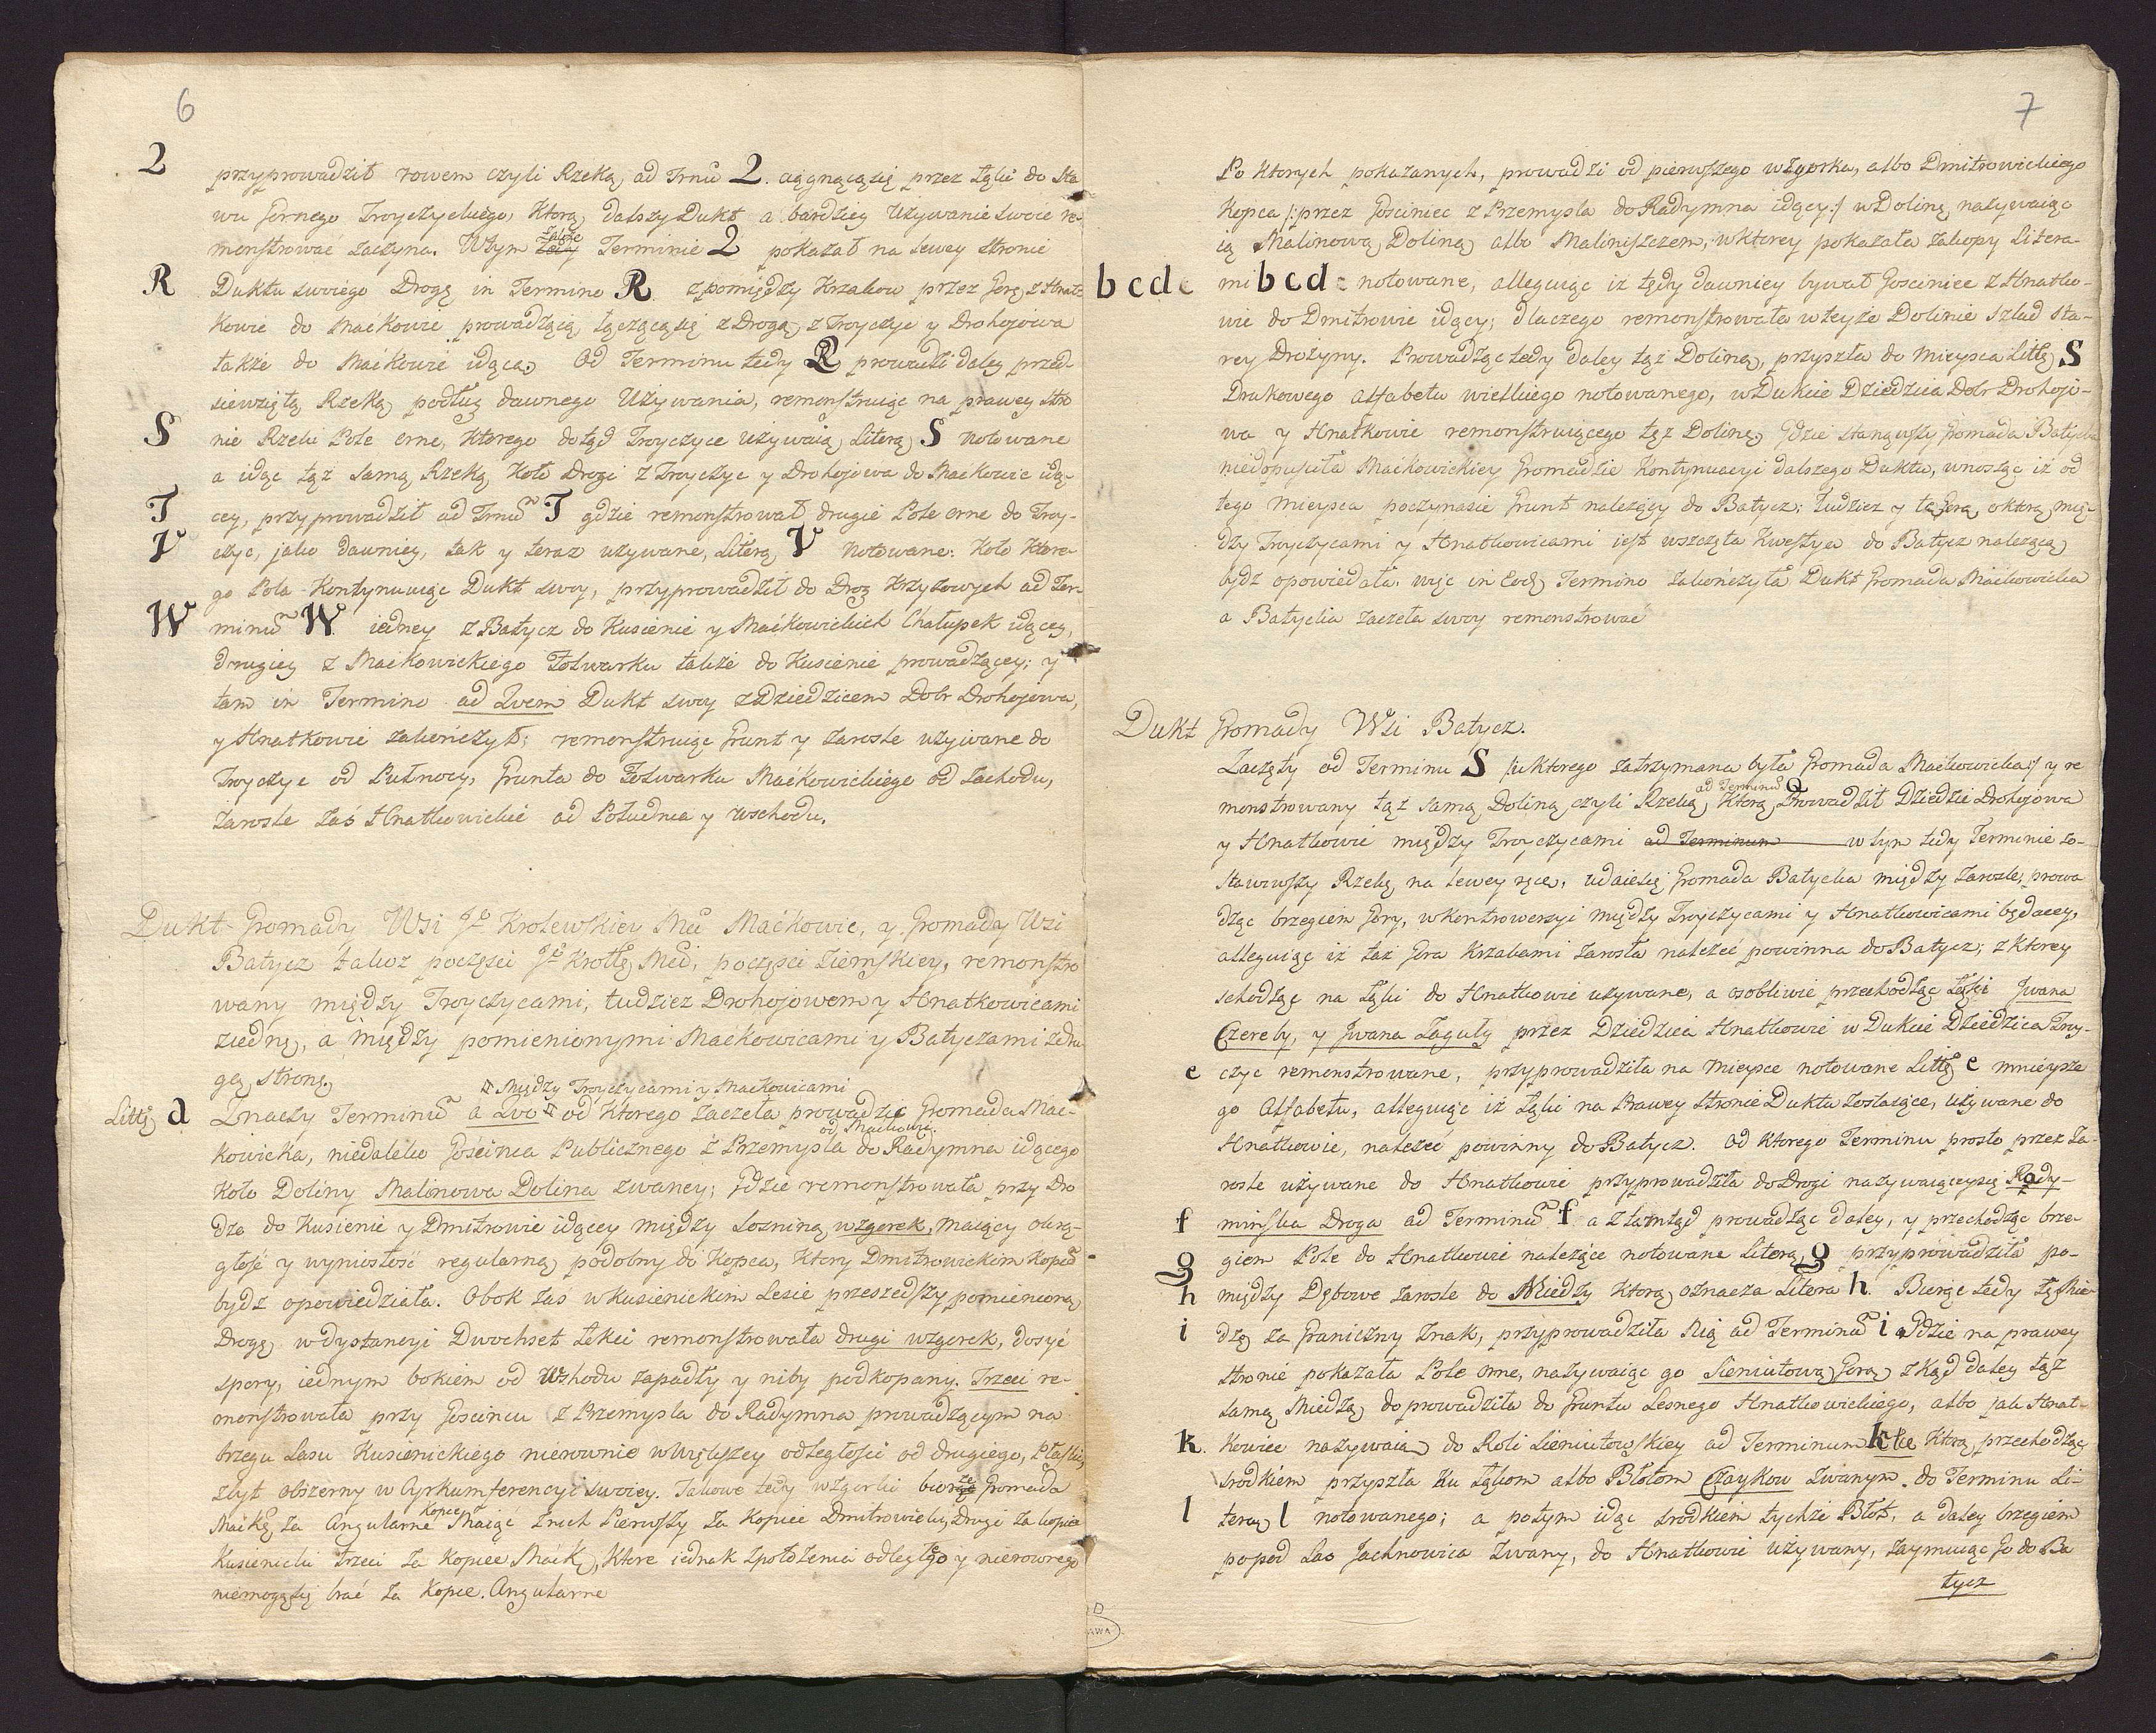 6
2 przyprowadził rowem czyli Rzeką, ad Trnū 2. ciągnącąsię przez Łąki do Sta
wu Gornego Troyczyckiego, Którą, dalszy Dukt a bardziey Używanie swoie re-
monstrować zaczyna. Wtym także Terminie 2 pokazał na lewey stronie
R Duktu swoiego Drogę in Termino R zpomiędzy Krzakow przez Gorę z Hnat-
kowic do Maćkowic prowadzącą, łączącąsię z Drogą z Troyczyc y Drohojowa
także do Maćkowic idącą. Od Terminu tedy R prowadzi daley przed-
siewziętą Rzeką, podług dawnego Używania, remonstruiąc na prawey stro
S nie Rzeki Pole orne, Którego dotąd Troyczyce używaią, Literą S notowane
a idąc tąż samą Rzeką, koło Drogi z Troyczyc y Drohojowa do Maćkowic idą-
T cey, przyprowadził ad Trnū T gdzie remonstrował drugie Pole orne do Troy-
V czyc, jako dawniey, tak y teraz używane, Literą V notowane: Koło Które-
go Pola Kontynuuiąc Dukt swoy, przyprowadził do Drog Krzyżowych ad Ter-
W minū W. iedney z Batycz do Kusienic y Maćkowickich Chałupek idącey,
drugiey z Maćkowickiego Folwarku także do Kusienic prowadzącey; y
tam in Termino ad Quem Dukt swoy z Dziedzicem Dobr Drohojowa,
y Hnatkowic zakończył; remonstruiąc Grunt y zarosle używane do
Troyczyc od Pułnocy, Grunta do Folwarku Maćkowickiego od Zachodu,
Zarosle zaś Hnatkowickie od Południa y Wschodu.
Dukt Gromady Wsi Jº Krolewskiey Mci Maćkowic, y Gromady Wsi
Batycz takoż poczęsci Jº Krolle Mci, poczęsci Ziemskiey, remonstro
wany między Troyczycami, tudziez Drohojowem y Hnatkowicami
ziedney, a między pomienionymi Maćkowicami y Batyczami zdru
giey strony.
¤ Między Troyczycami y Maćkowicami
Litt: a Znaczy Terminū a Quo ¤ od Którego zaczeła prowadzić Gromada Mać-
od Maćkowic.
kowicka, niedaleko Gościńca Publicznego z Przemysla do Radymna idącego
Koło Doliny Malinowa Dolina zwaney; Gdzie remonstrowała przy Dro
dze do Kusienic y Dmitrowic idącey między Łozniną wzgorek, maiący okrą-
głość y wyniosłość regularną podobny do Kopca, Ktory Dmitrowickim Kopcē
bydz opowiedziała. Obok zas w Kusienickim Lesie przeszedszy pomienioną
Drogę w dystancyi Dwochset Łokci remonstrowała drugi wzgorek, dosyć
spory, iednym bokiem od Wschodu zapadły y niby podkopany. Trzeci re-
monstrowała przy Gościńcu z Przemysla do Radymna prowadzącym na
brzegu Lasu Kusienickiego nierownie w większey odległości od drugiego, płaski,
zbyt obszerny w Cyrkumferencyi swoiey. Takowe tedy wzgorki bierze Gromada
Maćk: za Angularne Kopce Maiąc Pierwszy za Kopiec Dmitrowicki, Drugi za kopiec
Kusienicki trzeci za Kopiec Maćk:, Które iednak z położenia odległego y nierownego
niemogąsię brać za Kopce Angularne
7
Po Ktorych pokazanych, prowadzi od pierwszego wzgorka, albo Dmitrowickiego
Kopca /:przez Gosciniec z Przemysla do Radymna idący:/ w Dolinę, nazywaiąc
ią Malinową Doliną albo Maliniszczem, w ktorey pokazała zakopy Litera-
b c d e mi b c d e notowane, alleguiąc iz tędy dawniey bywał Gosciniec z Hnatko-
wic do Dmitrowic idący; dlaczego remonstrowała w teyże Dolinie szlad sta-
rey Drożyny. Prowadząc tedy daley tąż Doliną, przyszła do Mieysca Littą S
Drukowego alfabetu wielkiego notowanego, w Dukcie Dziedzica Dobr Drohojo-
wa y Hnatkowic remonstruiącego tąż Dolinę, gdzie stanąwszy Gromada Batycka
niedopuscila Maćkowickiey Gromadzie Kontynuacyi dalszego Duktu, wnosząc iż od
tego Mieysca poczynasie Grunt należący do Batycz; tudziez y tę Gorę, o ktorą mię-
dzy Troyczycami y Hnatkowicami iest wszczęta Kwestya do Batycz należącą
bydz opowiedała. więc in Eodē Termino zakończyła Dukt Gromada Maćkowicka
a Batycka zaczeła swoy remonstrować
Dukt Gromady Wsi Batycz.
Zaczęty od Terminu S /:u Ktorego zatrzymana była Gromada Maćkowicka:/ y re
ad Terminū Q
monstrowany tąż samą Doliną czyli Rzeką, Którą Prowadził Dziedzic Drohojowa
y Hnatkowic między Troyczycami ad Terminum w tym tedy Terminie zo-
stawiwszy Rzekę na lewey ręce, udaiesię Gromada Batycka między zarosle, prowa
dząc brzegiem Gory, w Kontrowersyi między Troyczycami y Hnatkowicami będącey,
alleguiąc iż taż Gora Krzakami zarosła należeć powinna do Batycz; z Ktorey
schodząc na Łąki do Hnatkowic używane, a osobliwie przechodząc Łąki Jwana
Czereby, y Jwana Zaguły przez Dziedzica Hnatkowic w Dukcie Dziedzica Troy-
e czyc remonstrowane, przyprowadziła na mieysce notowane Littą e mnieysze
go Alfabetu, alleguiąc iż Łąki na Prawey stronie Duktu zostaiące, używane do
Hnatkowic, należeć powinny do Batycz. Od Ktorego Terminu prosto przez Za-
rosle używane do Hnatkowic przyprowadziła do Drogi nazywaiąceysię Rady-
f minska Droga ad Terminū f. a ztamtąd prowadząc daley, y przechodząc brze-
g giem Pole do Hnatkowic należące notowane Literą g przyprowadziła po-
h między Dębowe zarosle do Miedzy Którą oznacza Litera h. Biorąc tedy tę Mie
i dzę za Graniczny znak, przyprowadziła Nią ad Terminū i Gdzie na prawey
stronie pokazała Pole orne, nazywaiąc go Sieniutową Gorą zkąd daley tąż
samą Miedzą doprowadziła do Gruntu Lesnego Hnatkowickiego, albo jak Hnat-
k. kowice nazywaią do Roli Sieniutowskiey ad Terminum k Którą przechodząc
srodkiem przyszła ku Łąkom albo Błotom Czaykow zwanym. do Terminu Li-
l terą l notowanego; a potym idąc srodkiem tychże Błot, a daley brzegiem
popod Las Jachnowica zwany, do Hnatkowic używany, zaymuiąc Go do Ba
tycz